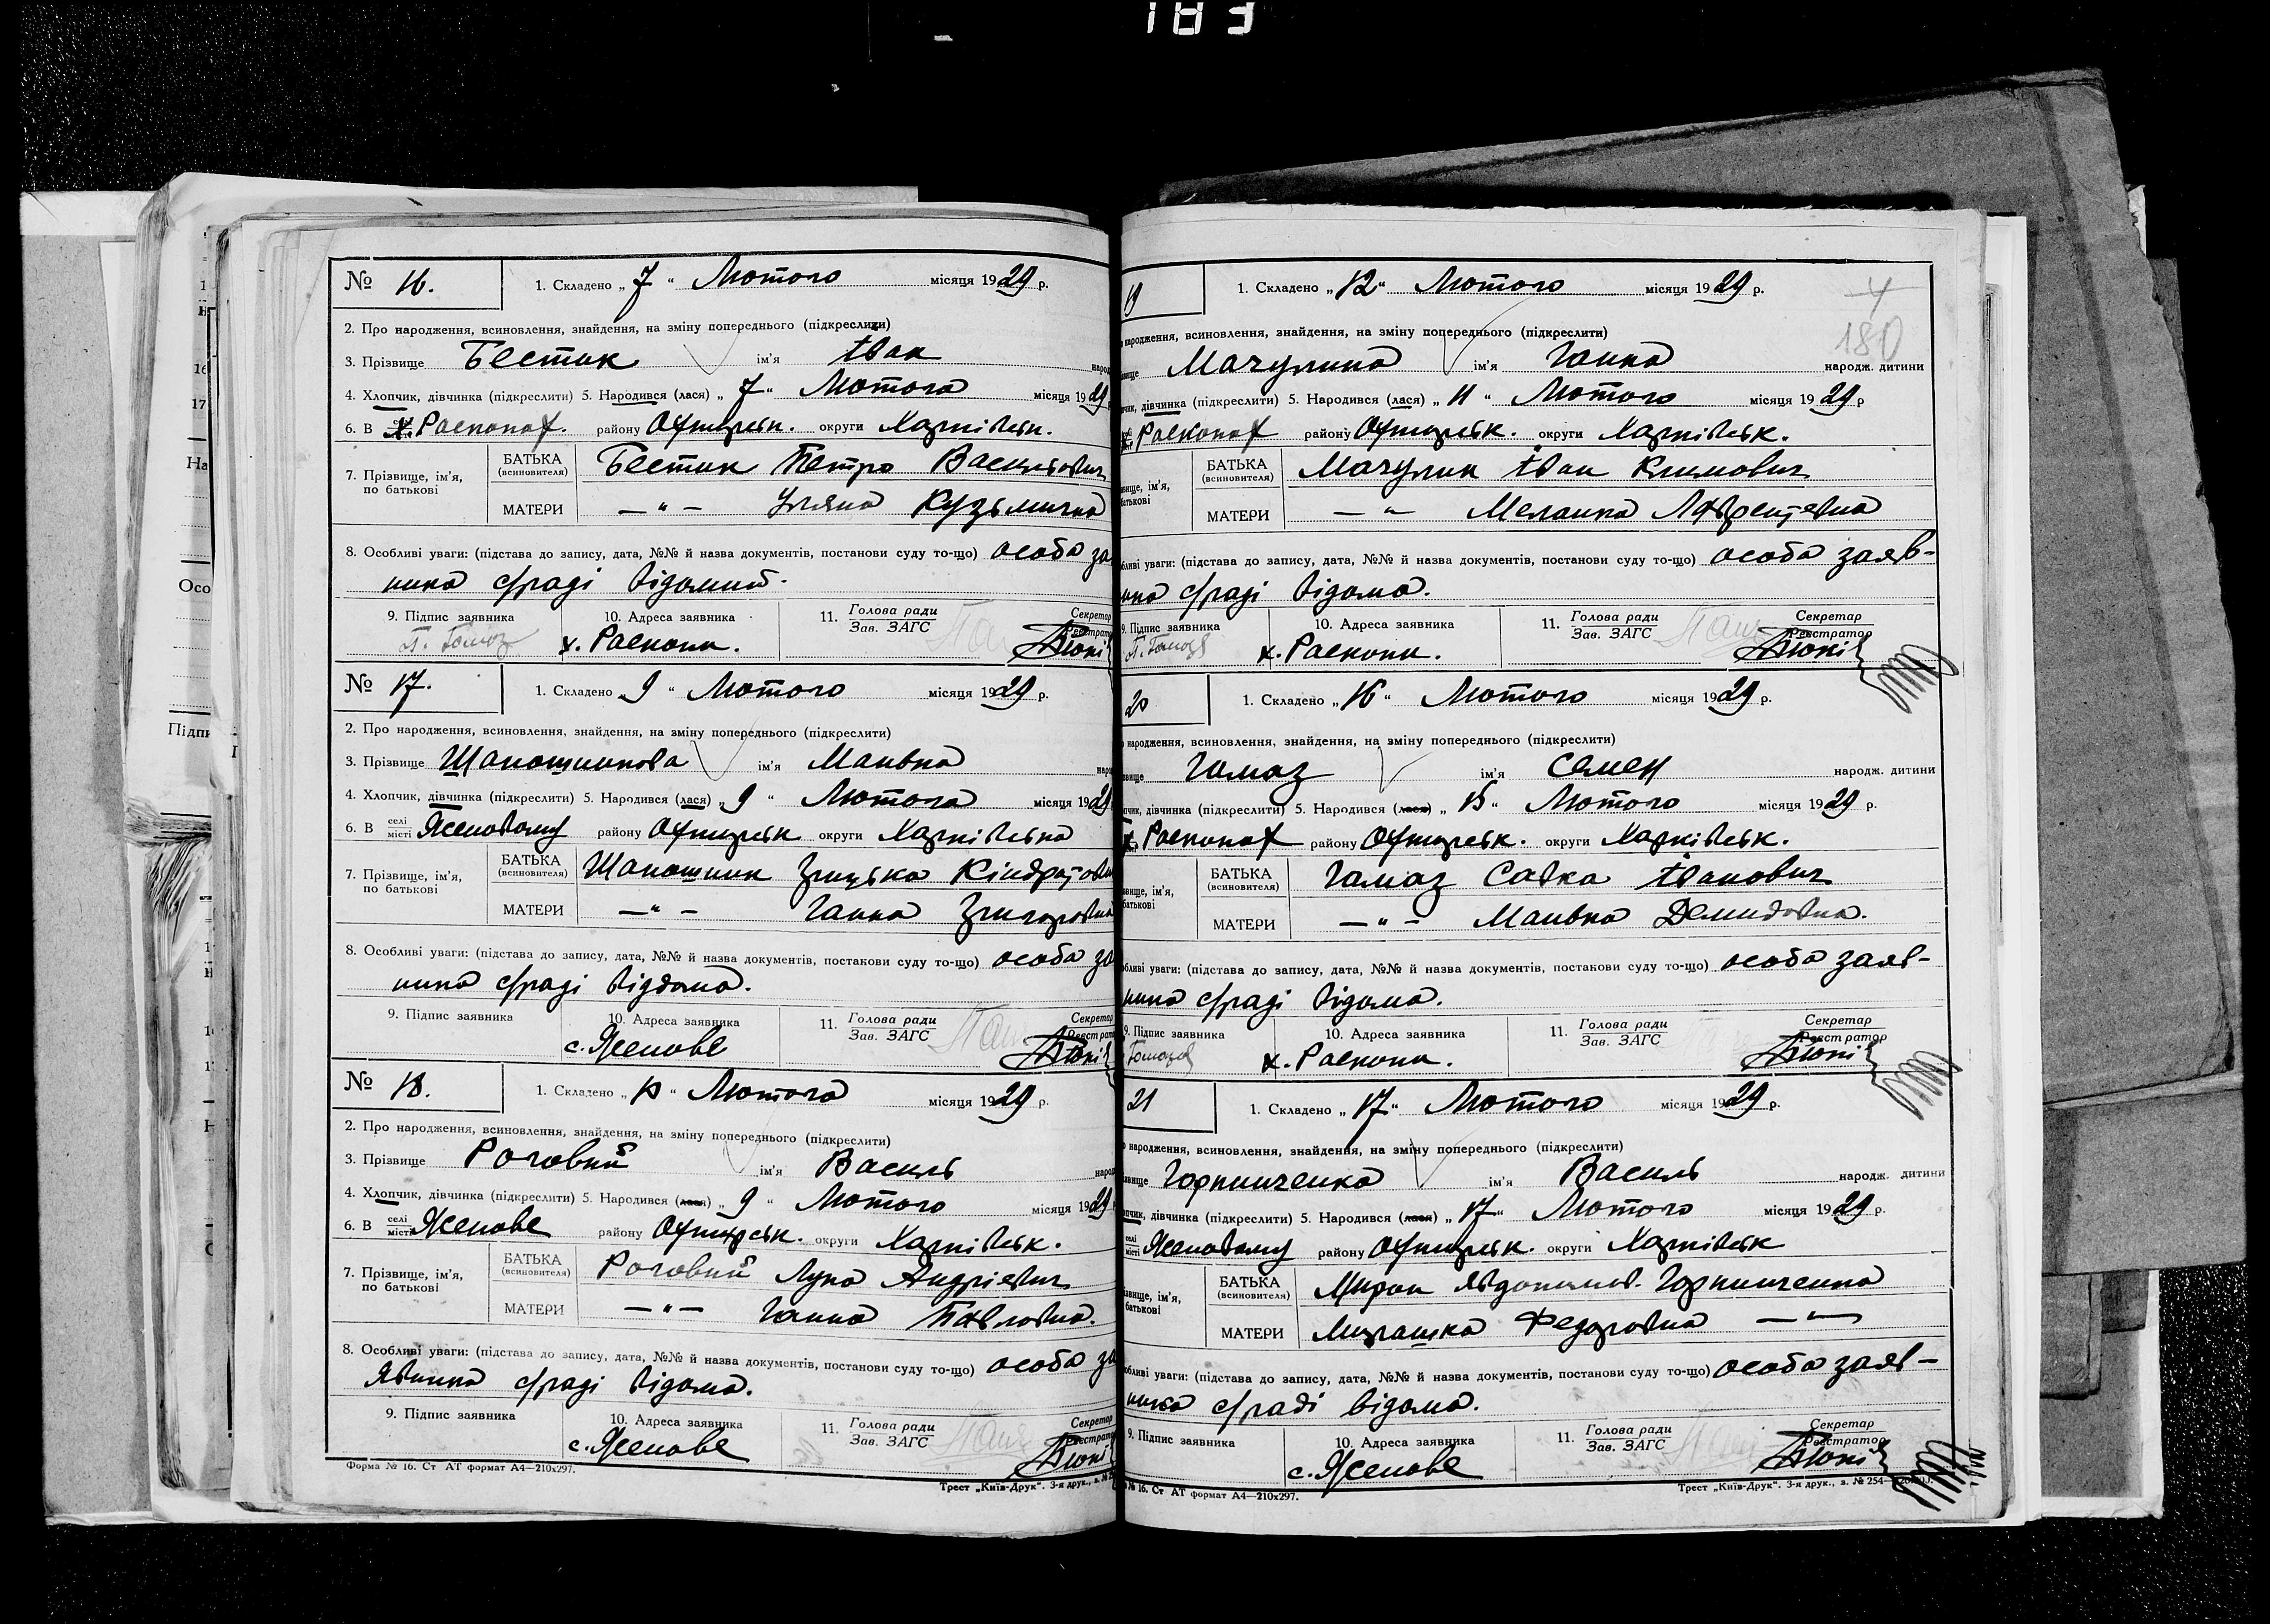 183
№ 16.
1. Складено „ 7 “ Лютого місяця 1929 р.
2. Про народження, всиновлення, знайдення, на зміну попереднього (підкреслити)
3. Прізвище Бестик ім'я Іван народ
4. Хлопчик, дівчинка (підкреслити) 5. Народився (лася) „ 7 “ Лютого місяця 1929
6. В х. Расkопах. району Охтирськ. округи Харківськ.
7. Прізвище, ім'я, по батькові
БАТЬКА (всиновителя) Бестик Петро Васильович
МАТЕРИ — „ — Уляна Кузьмична
8. Особливі уваги: (підстава до запису, дата, №№ й назва документів, постанови суду то-що) особа за
ника с/раді відомий.
9. Підпис заявника
10. Адреса заявника х. Раскопи.
11. Голова ради
Зав. ЗАГС
Секретар
Реєстратор
№ 17.
1. Складено 9 “ Лютого місяця 1929 р.
2. Про народження, всиновлення, знайдення, на зміну попереднього (підкреслити)
3. Прізвище Шапошникова ім'я Манька
4. Хлопчик, дівчинка (підкреслити) 5. Народився (лася) „ 9 “ Лютого місяця 1929
6. В селі місті Ясеновому району Охтирськ округи Харківська
7. Прізвище, ім'я, по батькові
БАТЬКА (всиновителя) Шапошник Грицько Кіндратови
МАТЕРИ — „ — Ганна Григоровна
8. Особливі уваги: (підстава до запису, дата, №№ й назва документів, постанови суду то-що) особа за
ника с/раді відома.
9. Підпис заявника
10. Адреса заявника с. Ясенове
11. Голова ради
Зав. ЗАГС
Секретар
Реєстратор
№ 18.
1. Складено „ 10 “ Лютого місяця 1929 р.
2. Про народження, всиновлення, знайдення, на зміну попереднього (підкреслити)
3. Прізвище Роговий ім'я Василь народ
4. Хлопчик, дівчинка (підкреслити) 5. Народився (лася) „ 9 “ Лютого місяця 1929
6. В селі місті Ясенове району Охтирськ. округи Харківськ.
7. Прізвище, ім'я, по батькові
БАТЬКА (всиновителя) Роговий Лука Андрієвич
МАТЕРИ — „ — Ганна Павловна.
8. Особливі уваги: (підстава до запису, дата, №№ й назва документів, постанови суду то-що) особа за
явника с/раді відома.
9. Підпис заявника
10. Адреса заявника с. Ясенове
11. Голова ради
Зав. ЗАГС
Секретар
Реєстратор
Форма № 16. Ст АТ формат А4—210х297.
Трест „Київ-Друк“. 3-я друк., з. №
19
1. Складено „ 12 “ Лютого місяця 1929 р.
4
180
народження, всиновлення, знайдення, на зміну попереднього (підкреслити)
Мачулина ім'я Ганна народж. дитини
дівчинка (підкреслити) 5. Народився (лася) „ 11 “ Лютого місяця 1929 р
х. Раскопах району Охтирськ. округи Харківськ.
БАТЬКА (всиновителя) Мачулин Іван Климович
МАТЕРИ — „ Меланка Лаврентевна
уваги: (підстава до запису, дата, №№ й назва документів, постанови суду то-що) особа заяв-
ника с/раді відома.
9. Підпис заявника
10. Адреса заявника х. Раскопи.
11. Голова ради
Зав. ЗАГС
Секретар
Реєстратор
20
1. Складено „ 16 “ Лютого місяця 1929 р.
народження, всиновлення, знайдення, на зміну попереднього (підкреслити)
Гамаз ім'я Семен народж. дитини
дівчинка (підкреслити) 5. Народився (лася) „ 15 “ Лютого місяця 1929 р.
х. Раскопах району Охтирськ. округи Харківськ.
БАТЬКА (всиновителя) Гамаз Савка Іванович
МАТЕРИ — „ — Манька Демидовна.
уваги: (підстава до запису, дата, №№ й назва документів, постанови суду то-що) особа заяв-
ника с/раді відома.
9. Підпис заявника
10. Адреса заявника х. Раскопи.
11. Голова ради
Зав. ЗАГС
Секретар
Реєстратор
21
1. Складено „ 17 “ Лютого місяця 1929 р.
народження, всиновлення, знайдення, на зміну попереднього (підкреслити)
Горпинченко ім'я Василь народж. дитини
дівчинка (підкреслити) 5. Народився (лася) „ 17 “ Лютого місяця 1929 р.
селі місті Ясеновому району Охтирськ. округи Харківськ
БАТЬКА (всиновителя) Мирон Явдоким. Горпинченко
МАТЕРИ Миrашка Федоровна — „ —
уваги: (підстава до запису, дата, №№ й назва документів, постанови суду то-що) особа заяв-
ника с/раді відома.
9. Підпис заявника
10. Адреса заявника с. Ясенове
11. Голова ради
Зав. ЗАГС
Секретар
Реєстратор
№ 16. Ст АТ формат А4—210х297.
Трест „Київ-Друк“. 3-я друк., з. № 254